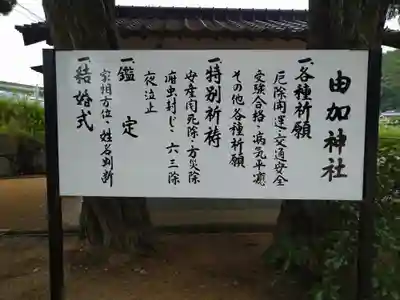 由加神社
一、各種祈願
厄除開運・交通安全
受験合格・病気平癒
その他各種祈願
一、特別祈祷
安産開死除・方災除
疳虫封じ・六三除
夜泣止
一、鑑定
家相方位・姓名判断
一、結婚式